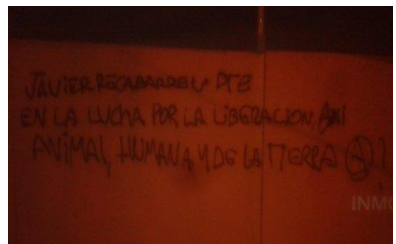 JAVIER RECABARREN PTE
EN LA LUCHA POR LA LIBERACION, ANI
ANIMAL, HUMANA Y DE LA TIERRA Ⓐ!
INMO